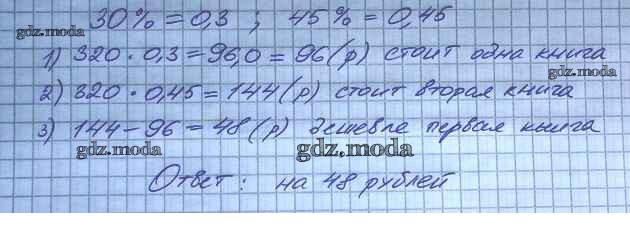 30% = 0,3 ; 45% = 0,45
gdz.moda
1) 320 · 0,3 = 96,0 = 96 (р) стоит одна книга
gdz.moda
2) 320 · 0,45 = 144 (р) стоит вторая книга
3) 144 - 96 = 48 (р) дешевле первая книга
gdz.moda
gdz.moda
Ответ: на 48 рублей